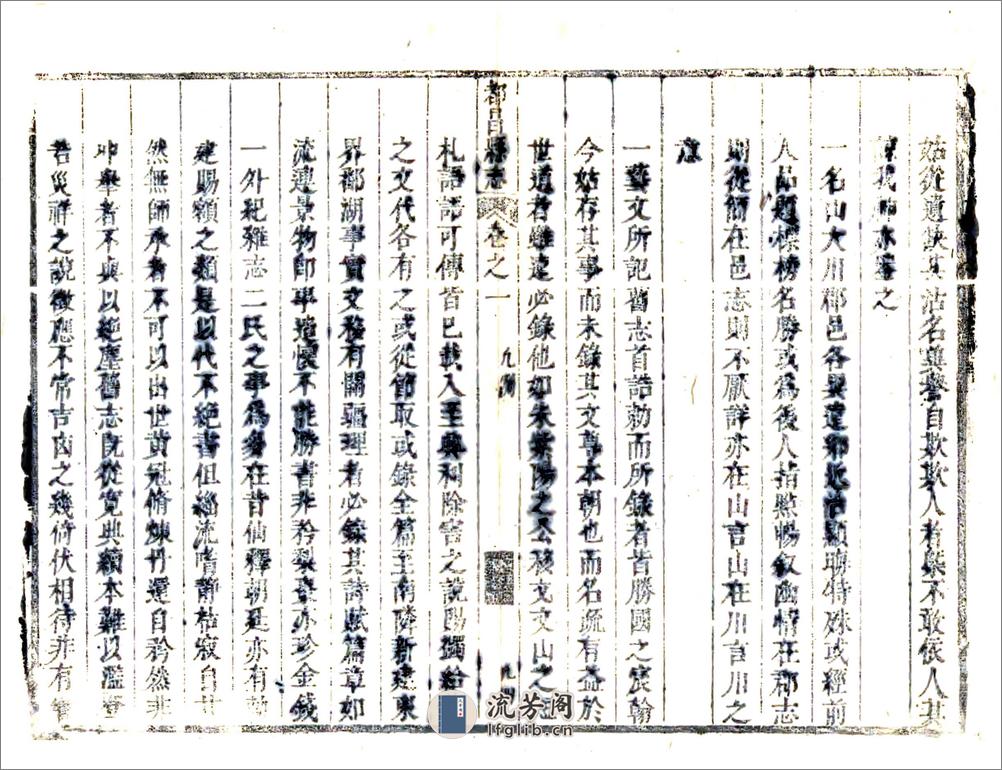 姑從遺缺其沽名冀譽自欺欺人者槩不敢依人其
之
一名山大川郡邑各異遠邇近特殊或經前
人品題標榜名勝或為後人指點暢叙幽情在郡志
則從節在邑志則不厭詳亦在山言山在川言川之
意
一藝文所記舊志首誥勅而所錄者皆勝國之宸翰
今姑存其事而未錄其文尊本朝也而名疏有益於
世道者雖遠必錄他如朱紫陽之公移文文山之
札語語可傳皆已載入至興利除害之說賜蠲給
之文代各有之或從節取或錄全篇至南隣新建東
界鄱湖事實文務有關疆理者必錄其詩賦篇章如
流連景物即事遣懷不能勝書非矜梨棗亦珍金錢
一外紀雜志二氏之事為多在昔仙釋朝廷亦有
建賜額之類是以代不絕書但緇流嗜靜枯寂自甘
然無師承者不可以出世黃冠脩煉丹還自矜然非
舉者不與以絶塵舊志既從寬典續本難以濫登
若災祥之說徵應不常吉凶之幾倚伏相待非有
都昌縣志
卷之一
流芳阁
lfglib.cn